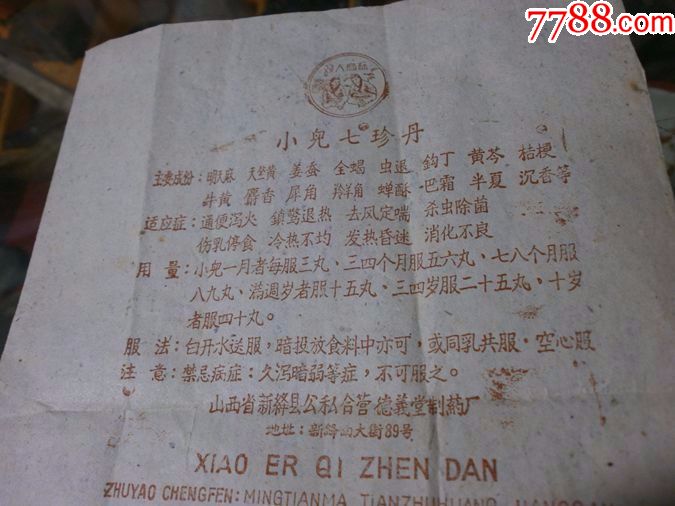 7788.com
小兒七珍丹
主要成份：明天麻 天竺黄 姜蚕 全蝎 虫退 鈎丁 黄芩 桔梗
牛黄 麝香 犀角 羚羊角 蝉酥 巴霜 半夏 沉香等
适应症：通便泻火 鎮驚退热 去风定喘 杀虫除菌
伤乳停食 冷热不均 发热昏迷 消化不良
用量：小兒一月者每服三丸、三四个月服五六丸、七八个月服
八九丸、滿週岁者服十五丸、三四岁服二十五丸、十岁
者服四十丸。
服法：白开水送服，暗投放食料中亦可，或同乳共服·空心服
注意：禁忌病症：久泻暗弱等症，不可服之。
山西省新絳县公私合营德義堂制药厂
地址：新絳西大街89号
XIAO ER QI ZHEN DAN
ZHUYAO CHENGFEN: MINGTIANMA TIANZHUHUANG